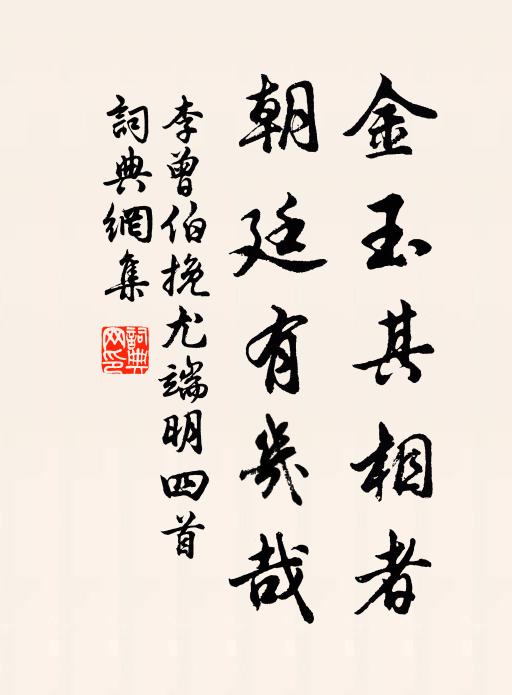 金玉其相者
朝廷有幾哉
李曾伯挽尤端明四首
詞典網集
詞典網印